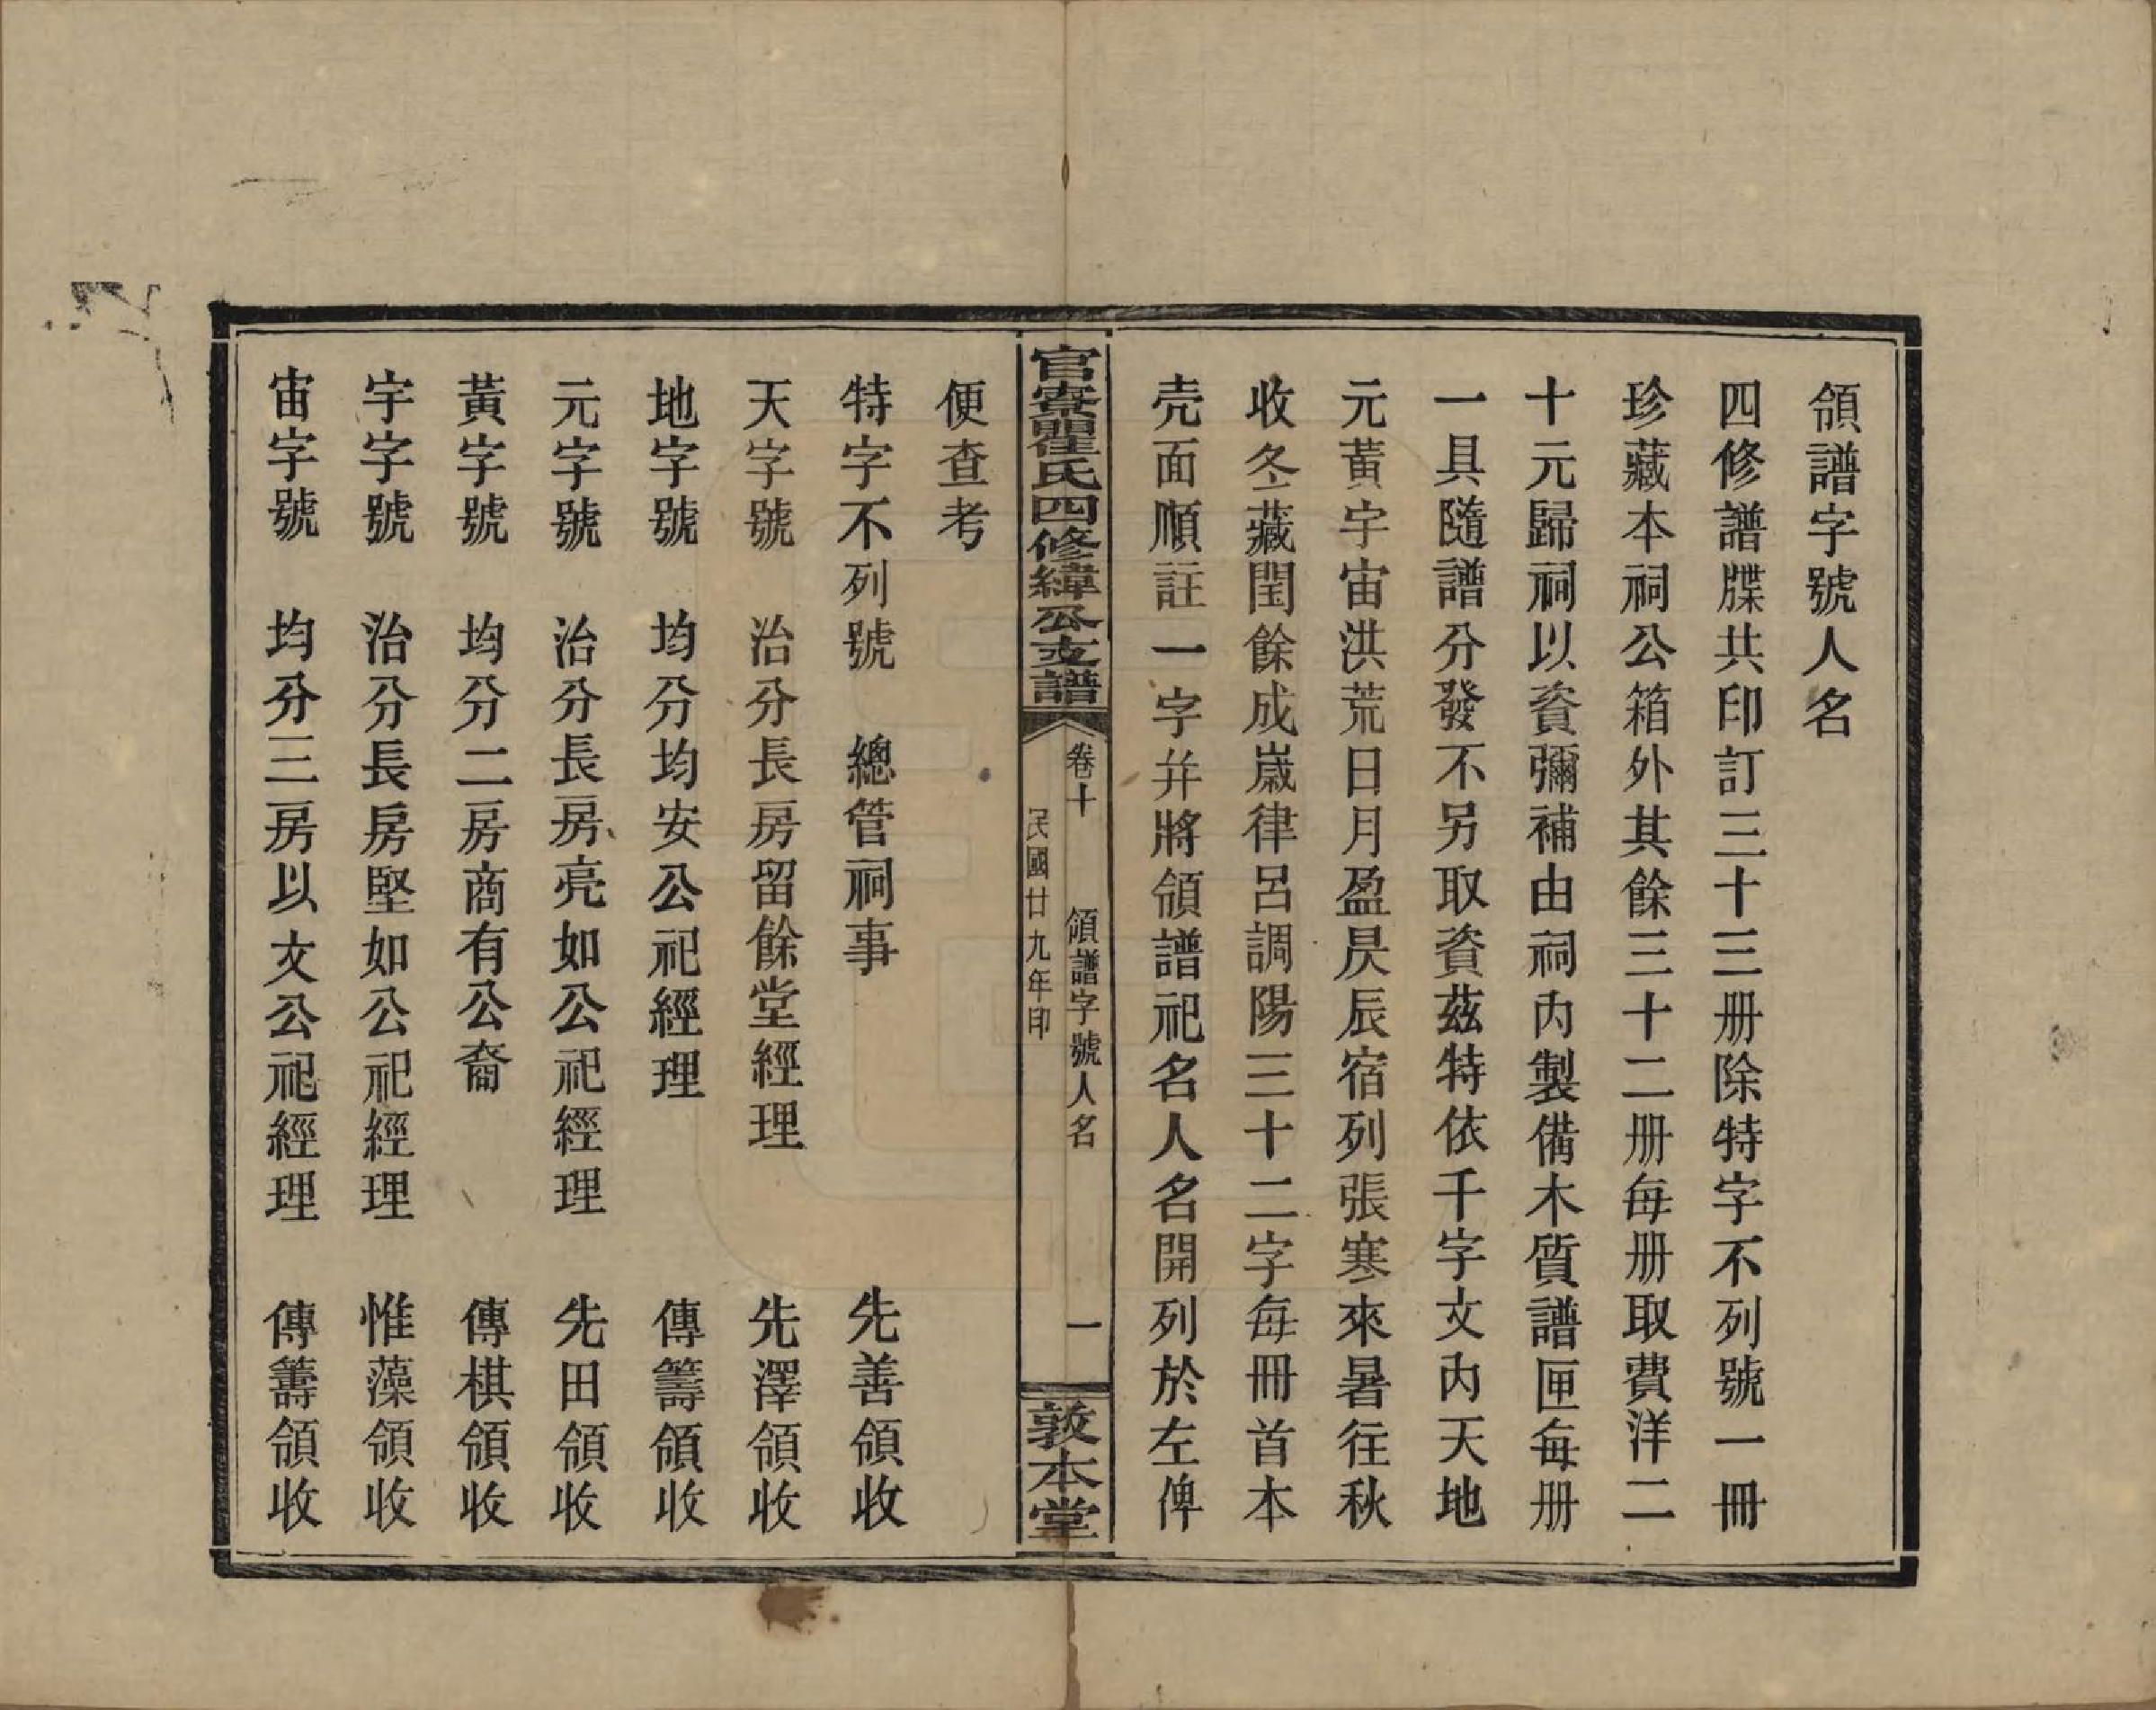 領譜字號人名
四修譜牒共印訂三十三册除特字不列號一冊
珍藏本祠公箱外其餘三十二册每册取費洋二
十元歸祠以資彌補由祠內製備木質譜匣每册
一具隨譜分發不另取資茲特依千字文內天地
元黃宇宙洪荒日月盈昃辰宿列張寒來暑往秋
收冬藏閏餘成嵗律呂調陽三十二字每冊首本
壳面順註一字幷將領譜祀名人名開列於左俾
官寮瞿氏四修緯公支譜
卷十 領譜字號人名 一
民國廿九年印
敦本堂
便查考
特字不列號 總管祠事 先善領收
天字號 治分長房留餘堂經理 先澤領收
地字號 均分均安公祀經理 傳籌領收
元字號 治分長房亮如公祀經理 先田領收
黃字號 均分二房商有公裔 傳棋領收
宇字號 治分長房堅如公祀經理 惟藻領收
宙字號 均分三房以文公祀經理 傳籌領收